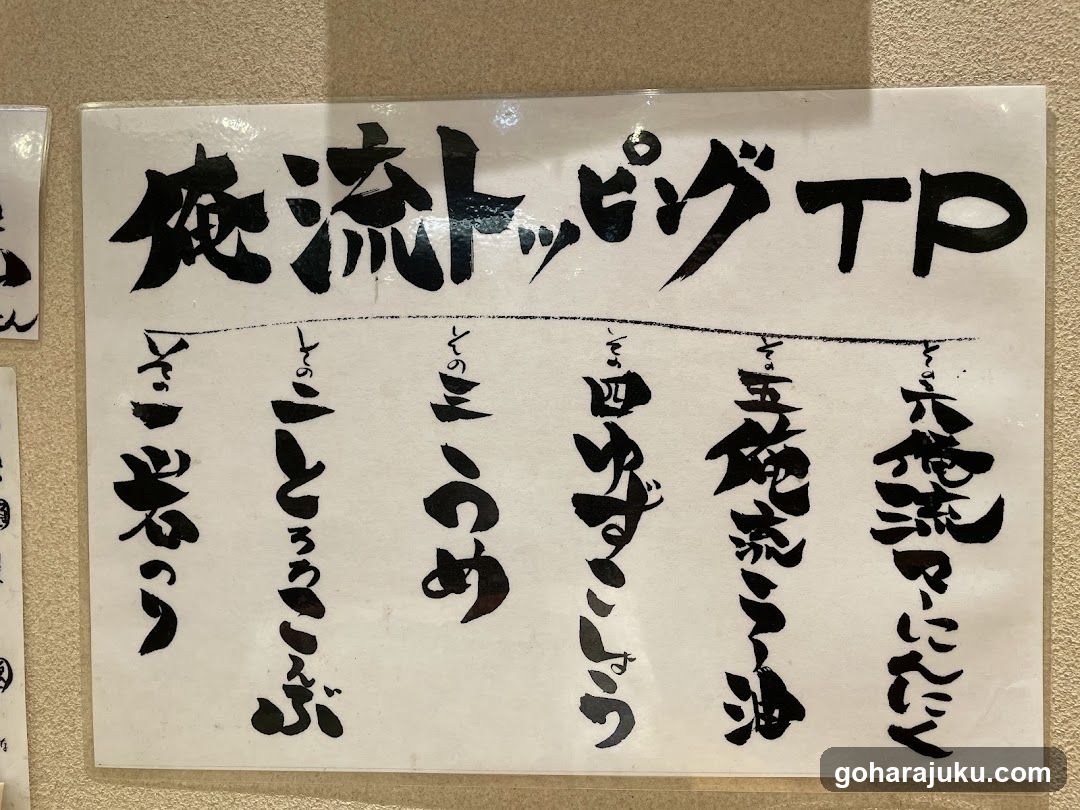 俺流トッピング TP
その一 岩のり
その二 とろろこんぶ
その三 うめ
その四 ゆずこしょう
その五 俺流ラー油
その六 俺流マーにんにく
goharajuku.com